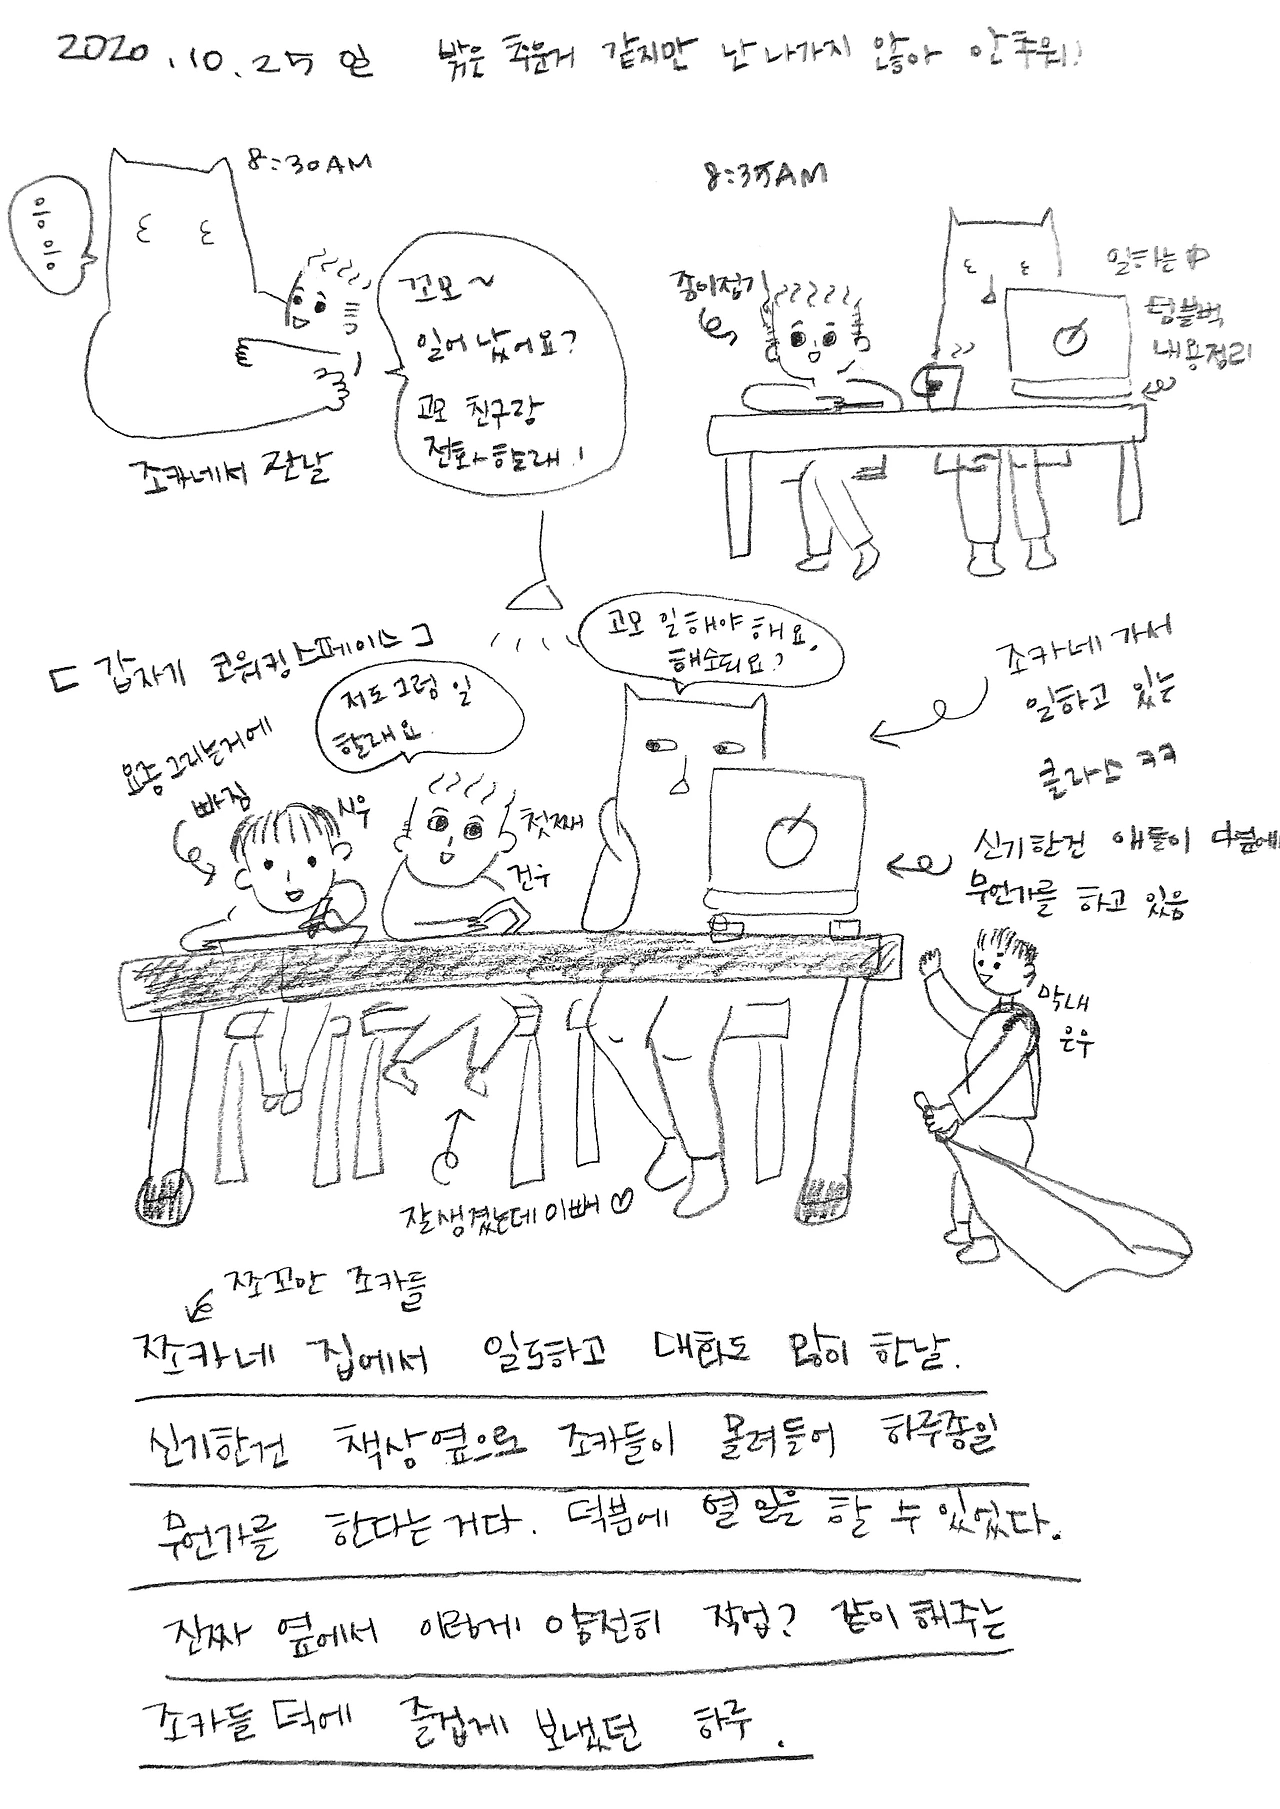 2020.10.25 일 밖은 추운거 같지만 난 나가지 않아 안추워!
8:30AM
응응
꼬모~
일어났어요?
고모 친구랑
전화할래!
조카네서 잔날
8:35AM
종이접기
일하는中
텀블벅
내용정리
ㄷ갑자기 코워킹스페이스ㄱ
고모 일해야해요.
해소되요?
저도 그럼 일
할래요.
요즘그리는거에
빠짐
시우
첫째
건우
조카네 가서
일하고 있는
클라스 ㅋㅋ
신기한건 애들이 다옆에
무언가를 하고 있음
막내
은우
잘생겼는데 이뻐♡
쪼꼬만 조카들
쪼카네 집에서 일도하고 대화도 많이 한날.
신기한건 책상옆으로 조카들이 몰려들어 하루종일
무언가를 한다는거다. 덕분에 열일을 할 수 있었다.
진짜 옆에서 이렇게 얌전히 작업? 같이해주는
조카들 덕에 즐겁게 보냈던 하루.